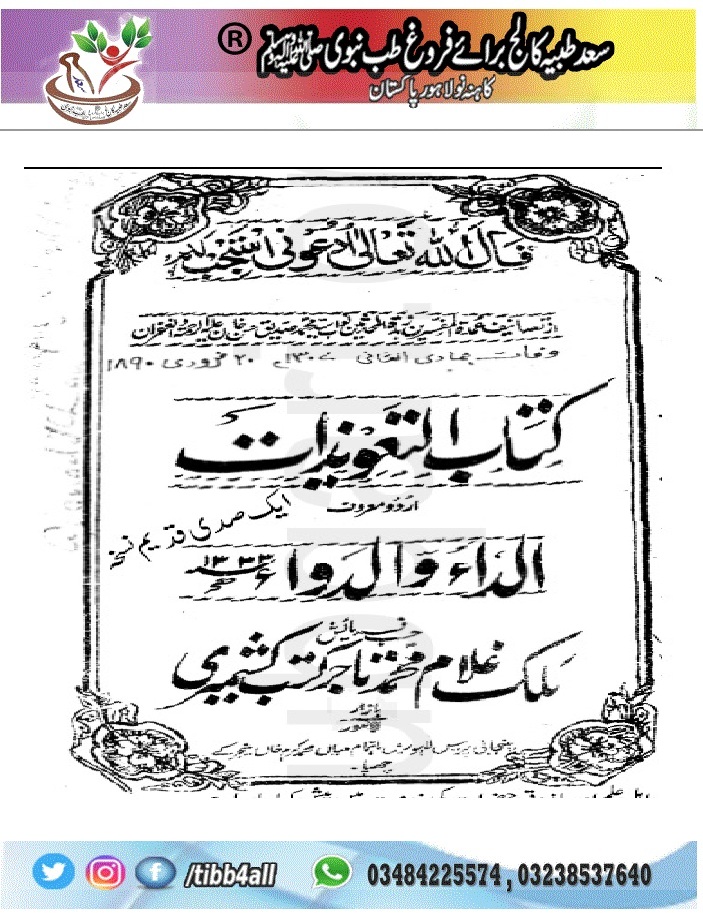 سعد طبیہ کالج برائے فروغ طب نبوی ﷺ ®
کاہنہ نو لاہور پاکستان
قال اللہ تعالیٰ ادعونی استجب لکم
از تصانیف عمدۃ المفسرین زبدۃ المحدثین نواب سید محمد صدیق حسن خان علیہ الرحمۃ والغفران
وفات جمادی الثانی ۱۳۰۷ھ ۲۰ فروری ۱۸۹۰
کتاب التعویذات
اردو معروف
ایک صدی قدیم نسخہ
الداء والدواء ۱۳۳۳ھ
حسب فرمائش
ملک غلام محمد تاجر کتب کشمیری
بازار
لاہور
پنجابی پریس لاہور میں باہتمام میاں خاں منیجر کے
چھپا
/tibb4all 03484225574 , 03238537640